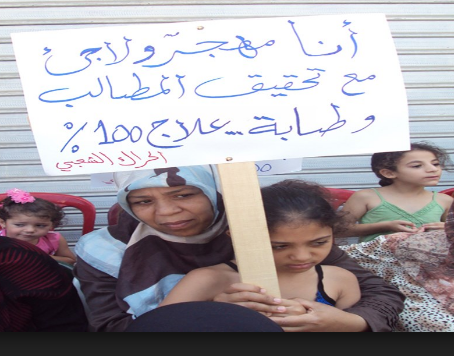 أنا مهجّر ولاجئ
مع تحقيق المطالب
وطبابة .. علاج 100 %
الحراك الشعبي